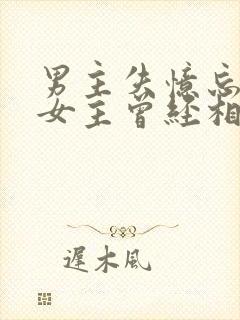 男主失憶忘
女主曾经相
遲木風